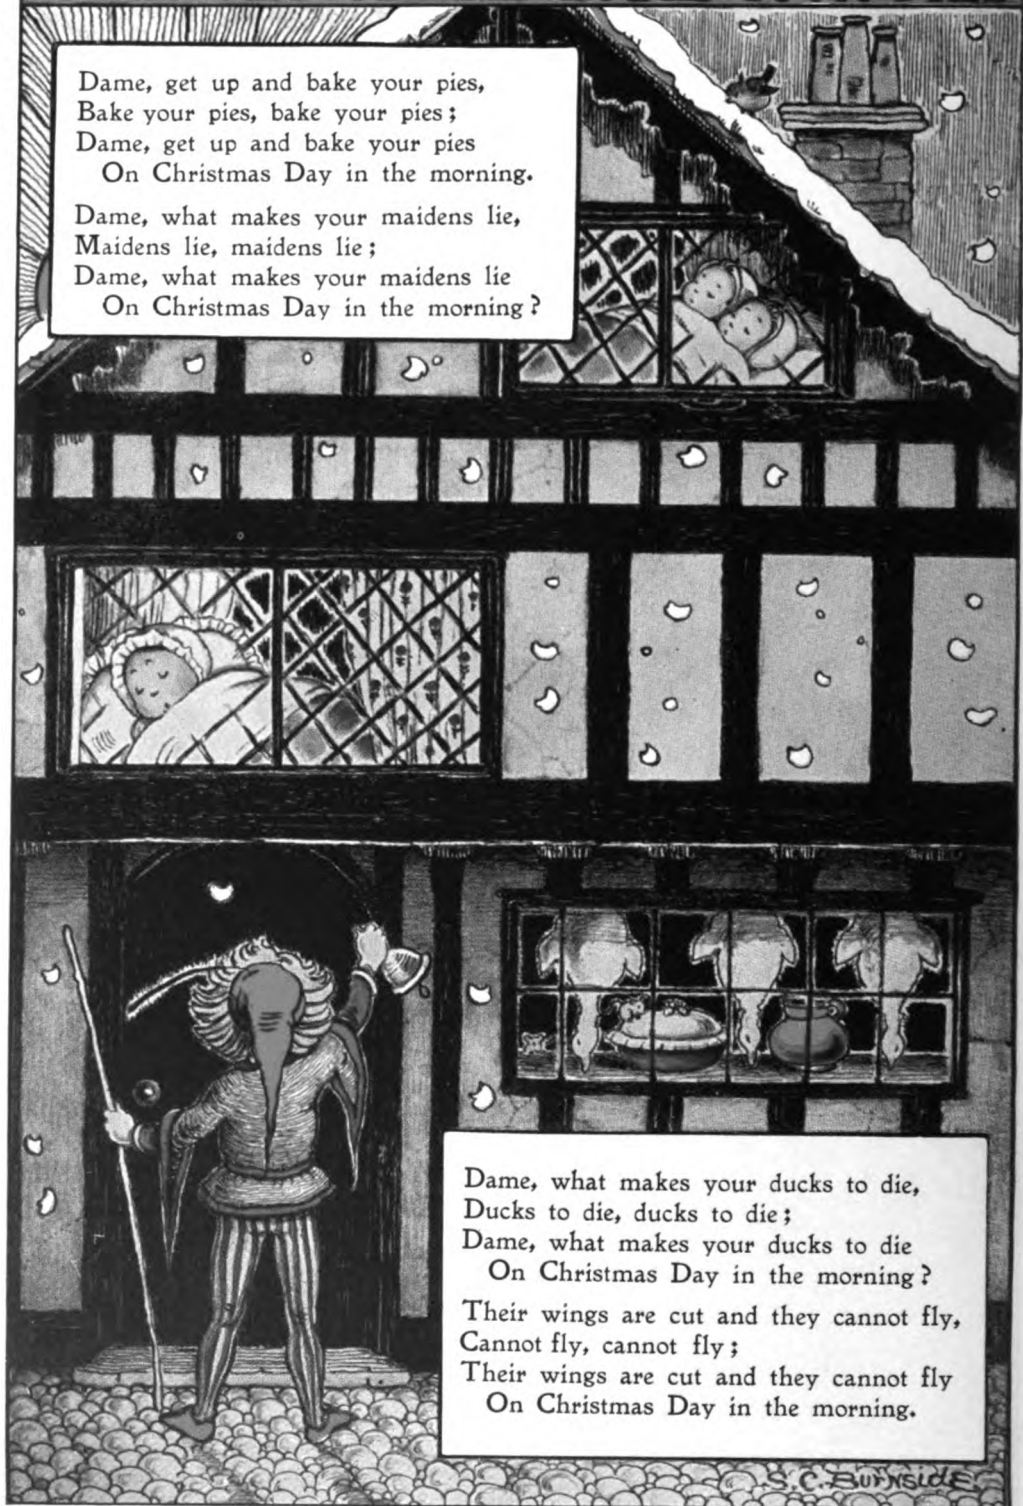 Dame, get up and bake your pies,
Bake your pies, bake your pies;
Dame, get up and bake your pies
On Christmas Day in the morning.
Dame, what makes your maidens lie,
Maidens lie, maidens lie;
Dame, what makes your maidens lie
On Christmas Day in the morning?
Dame, what makes your ducks to die,
Ducks to die, ducks to die;
Dame, what makes your ducks to die
On Christmas Day in the morning?
Their wings are cut and they cannot fly,
Cannot fly, cannot fly;
Their wings are cut and they cannot fly
On Christmas Day in the morning.
S. C. BURNSIDE